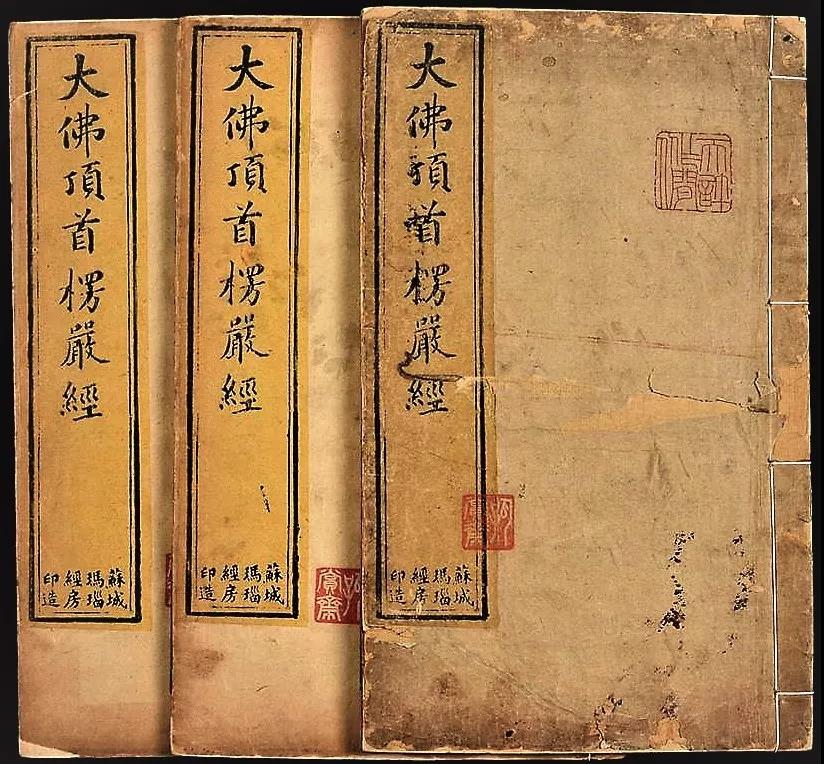 大佛頂首楞嚴經
蘇城
瑪瑙
經房
印造
大佛頂首楞嚴經
蘇城
瑪瑙
經房
印造
大佛頂首楞嚴經
蘇城
瑪瑙
經房
印造